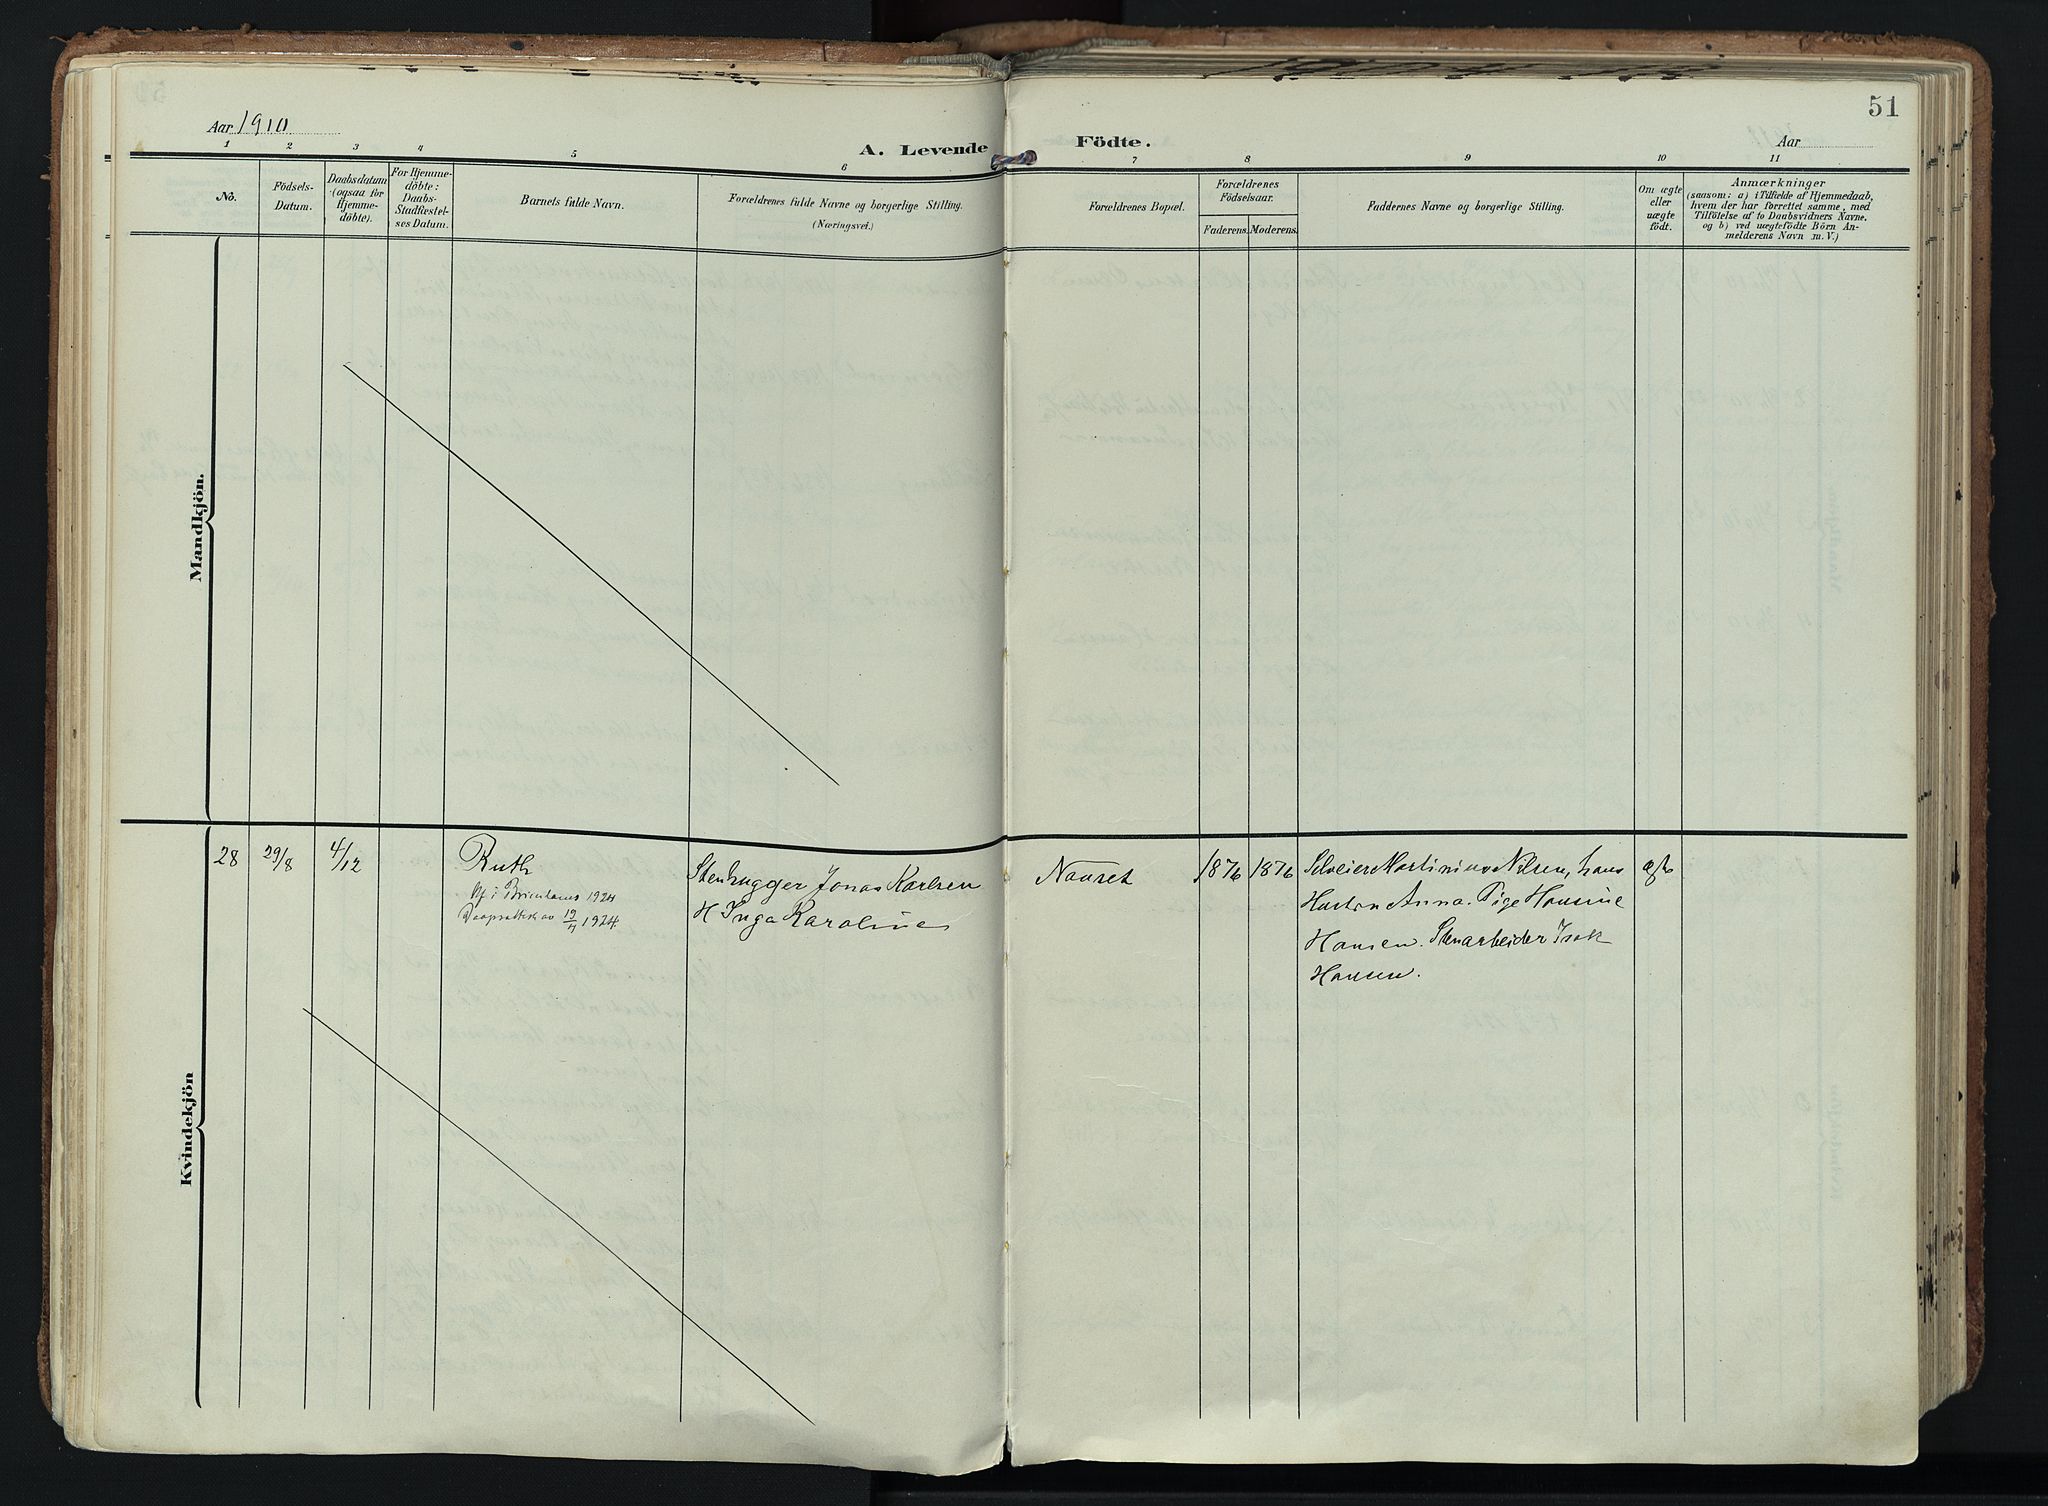 51
Aar 1910
A. Levende Födte.
Aar
1 2 3 4 5 6 7 8 9 10 11
No.
Födsels-
Datum.
Daabsdatum
(ogsaa for
Hjemme-
döbte).
For Hjemme-
döbte:
Daabs-
Stadfæstel-
ses Datum.
Barnets fulde Navn.
Forældrenes fulde Navne og borgerlige Stilling.
(Næringsvei.)
Forældrenes Bopæl.
Forældrenes
Födselsaar.
Faderens. Moderens.
Faddernes Navne og borgerlige Stilling.
Om ægte
eller
uægte
født.
Anmærkninger
(saasom: a) i Tilfælde af Hjemmedaab,
hvem der har forrettet samme, med
Tilföielse af to Daabsvidners Navne,
og b) ved uægtefödte Börn An-
melderens Navn m. V.)
Mandkjön.
Kvindekjön
28 29/8 4/12 Ruth
1924
19/4 1924.
Stenhugger Jonas Karlsen
H Inga Karoline
Nauset 1876 1876
Martinius Nilsen, hans
Hustru Anna. Pige Hansine
Hansen. Stenarbeider Isak
Hansen.
ægte